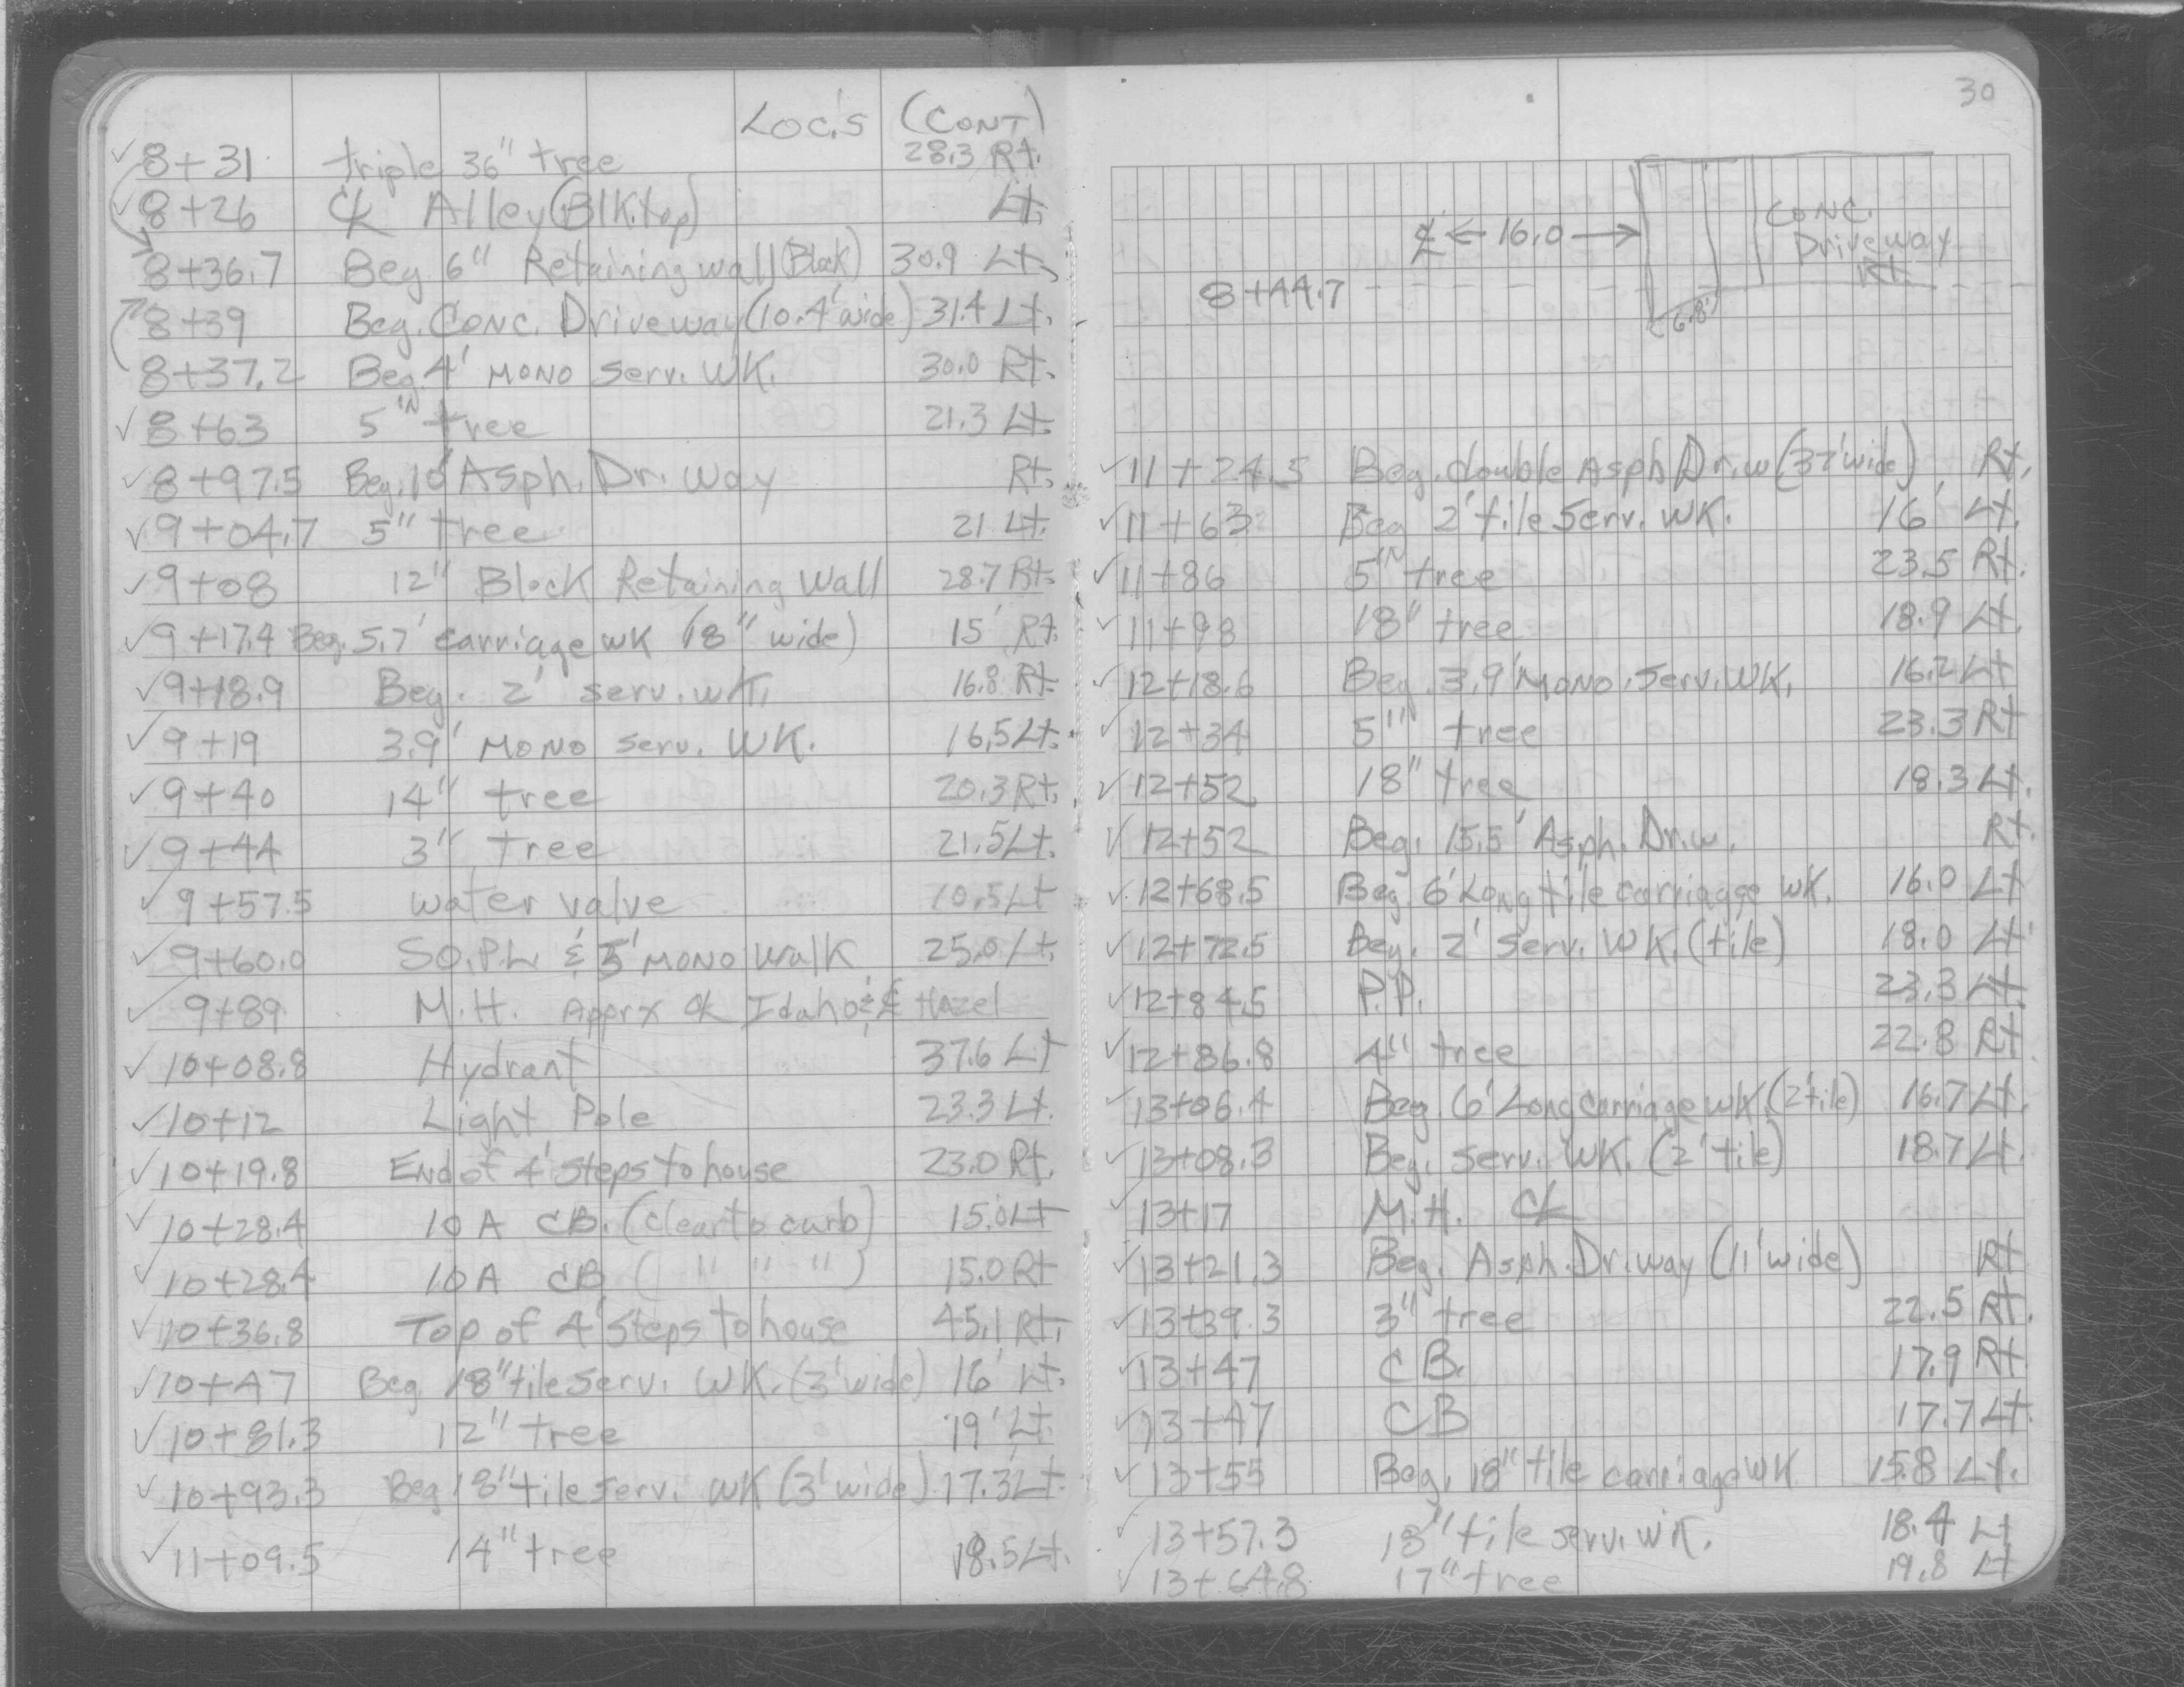 Loc.'s (Cont)
8+31 triple 36" tree 28.3 Rt.
8+26 ℄ Alley (Blk.top) Lt.
8+36.7 Beg 6" Retaining wall (Block) 30.9 Lt.
8+39 Beg. Conc. Driveway (10.4' wide) 31.4 Lt.
8+37.2 Beg. 4' mono serv. WK. 30.0 Rt.
8+63 5" tree 21.3 Lt.
8+97.5 Beg. 10' Asph. Dr. way Rt.
9+04.7 5" tree 21 Lt.
9+08 12" Block Retaining Wall 28.7 Rt.
9+17.4 Beg. 5.7' carriage wk (18" wide) 15' Rt.
9+18.9 Beg. 2' serv. wk. 16.8 Rt.
9+19 3.9' mono serv. WK. 16.5 Lt.
9+40 14" tree 20.3 Rt.
9+44 3" tree 21.5 Lt.
9+57.5 water valve 10.5 Lt
9+60.0 SO. P.L. & 5' mono walk 25.0 Lt.
9+89 M.H. Apprx ℄ Idaho & ℄ Hazel
10+08.8 Hydrant 37.6 Lt
10+12 Light Pole 23.3 Lt.
10+19.8 End of 4' steps to house 23.0 Rt.
10+28.4 10A CB. (clear to curb) 15.0 Lt
10+28.4 10A CB ( " " " ) 15.0 Rt
10+36.8 Top of 4' steps to house 45.1 Rt.
10+47 Beg 18" tile serv. WK. (3' wide) 16' Lt.
10+81.3 12" tree 19' Lt.
10+93.3 Beg 18" tile serv. WK (3' wide) 17.3' Lt.
11+09.5 14" tree 18.5 Lt.
30
℄ ← 16.0 → Conc. Driveway Rt.
8+44.7
6.8'
11+24.5 Beg. double Asph Dr.w (37' wide) Rt.
11+63 Beg 2' tile serv. WK. 16' Lt.
11+86 5" tree 23.5 Rt.
11+98 18" tree 18.9 Lt.
12+18.6 Beg. 3.9' mono. serv. WK. 16.2 Lt
12+34 5" tree 23.3 Rt
12+52 18" tree 18.3 Lt.
12+52 Beg. 15.5' Asph. Dr.w. Rt.
12+68.5 Beg. 6' Long tile carriage WK. 16.0 Lt
12+72.5 Beg. 2' serv. WK. (tile) 18.0 Lt
12+84.5 P.P. 23.3 Lt.
12+86.8 4" tree 22.8 Rt
13+06.4 Beg. 6' Long carriage WK. (2' tile) 16.7 Lt.
13+08.3 Beg. serv. WK. (2' tile) 18.7 Lt.
13+17 M.H. ℄
13+21.3 Beg. Asph. Dr. way (11' wide) Rt
13+39.3 3" tree 22.5 Rt.
13+47 CB. 17.9 Rt
13+47 CB 17.7 Lt.
13+55 Beg. 18" tile carriage WK 15.8 Lt.
13+57.3 18" tile serv. WK. 18.4 Lt
13+64.8 17" tree 19.8 Lt